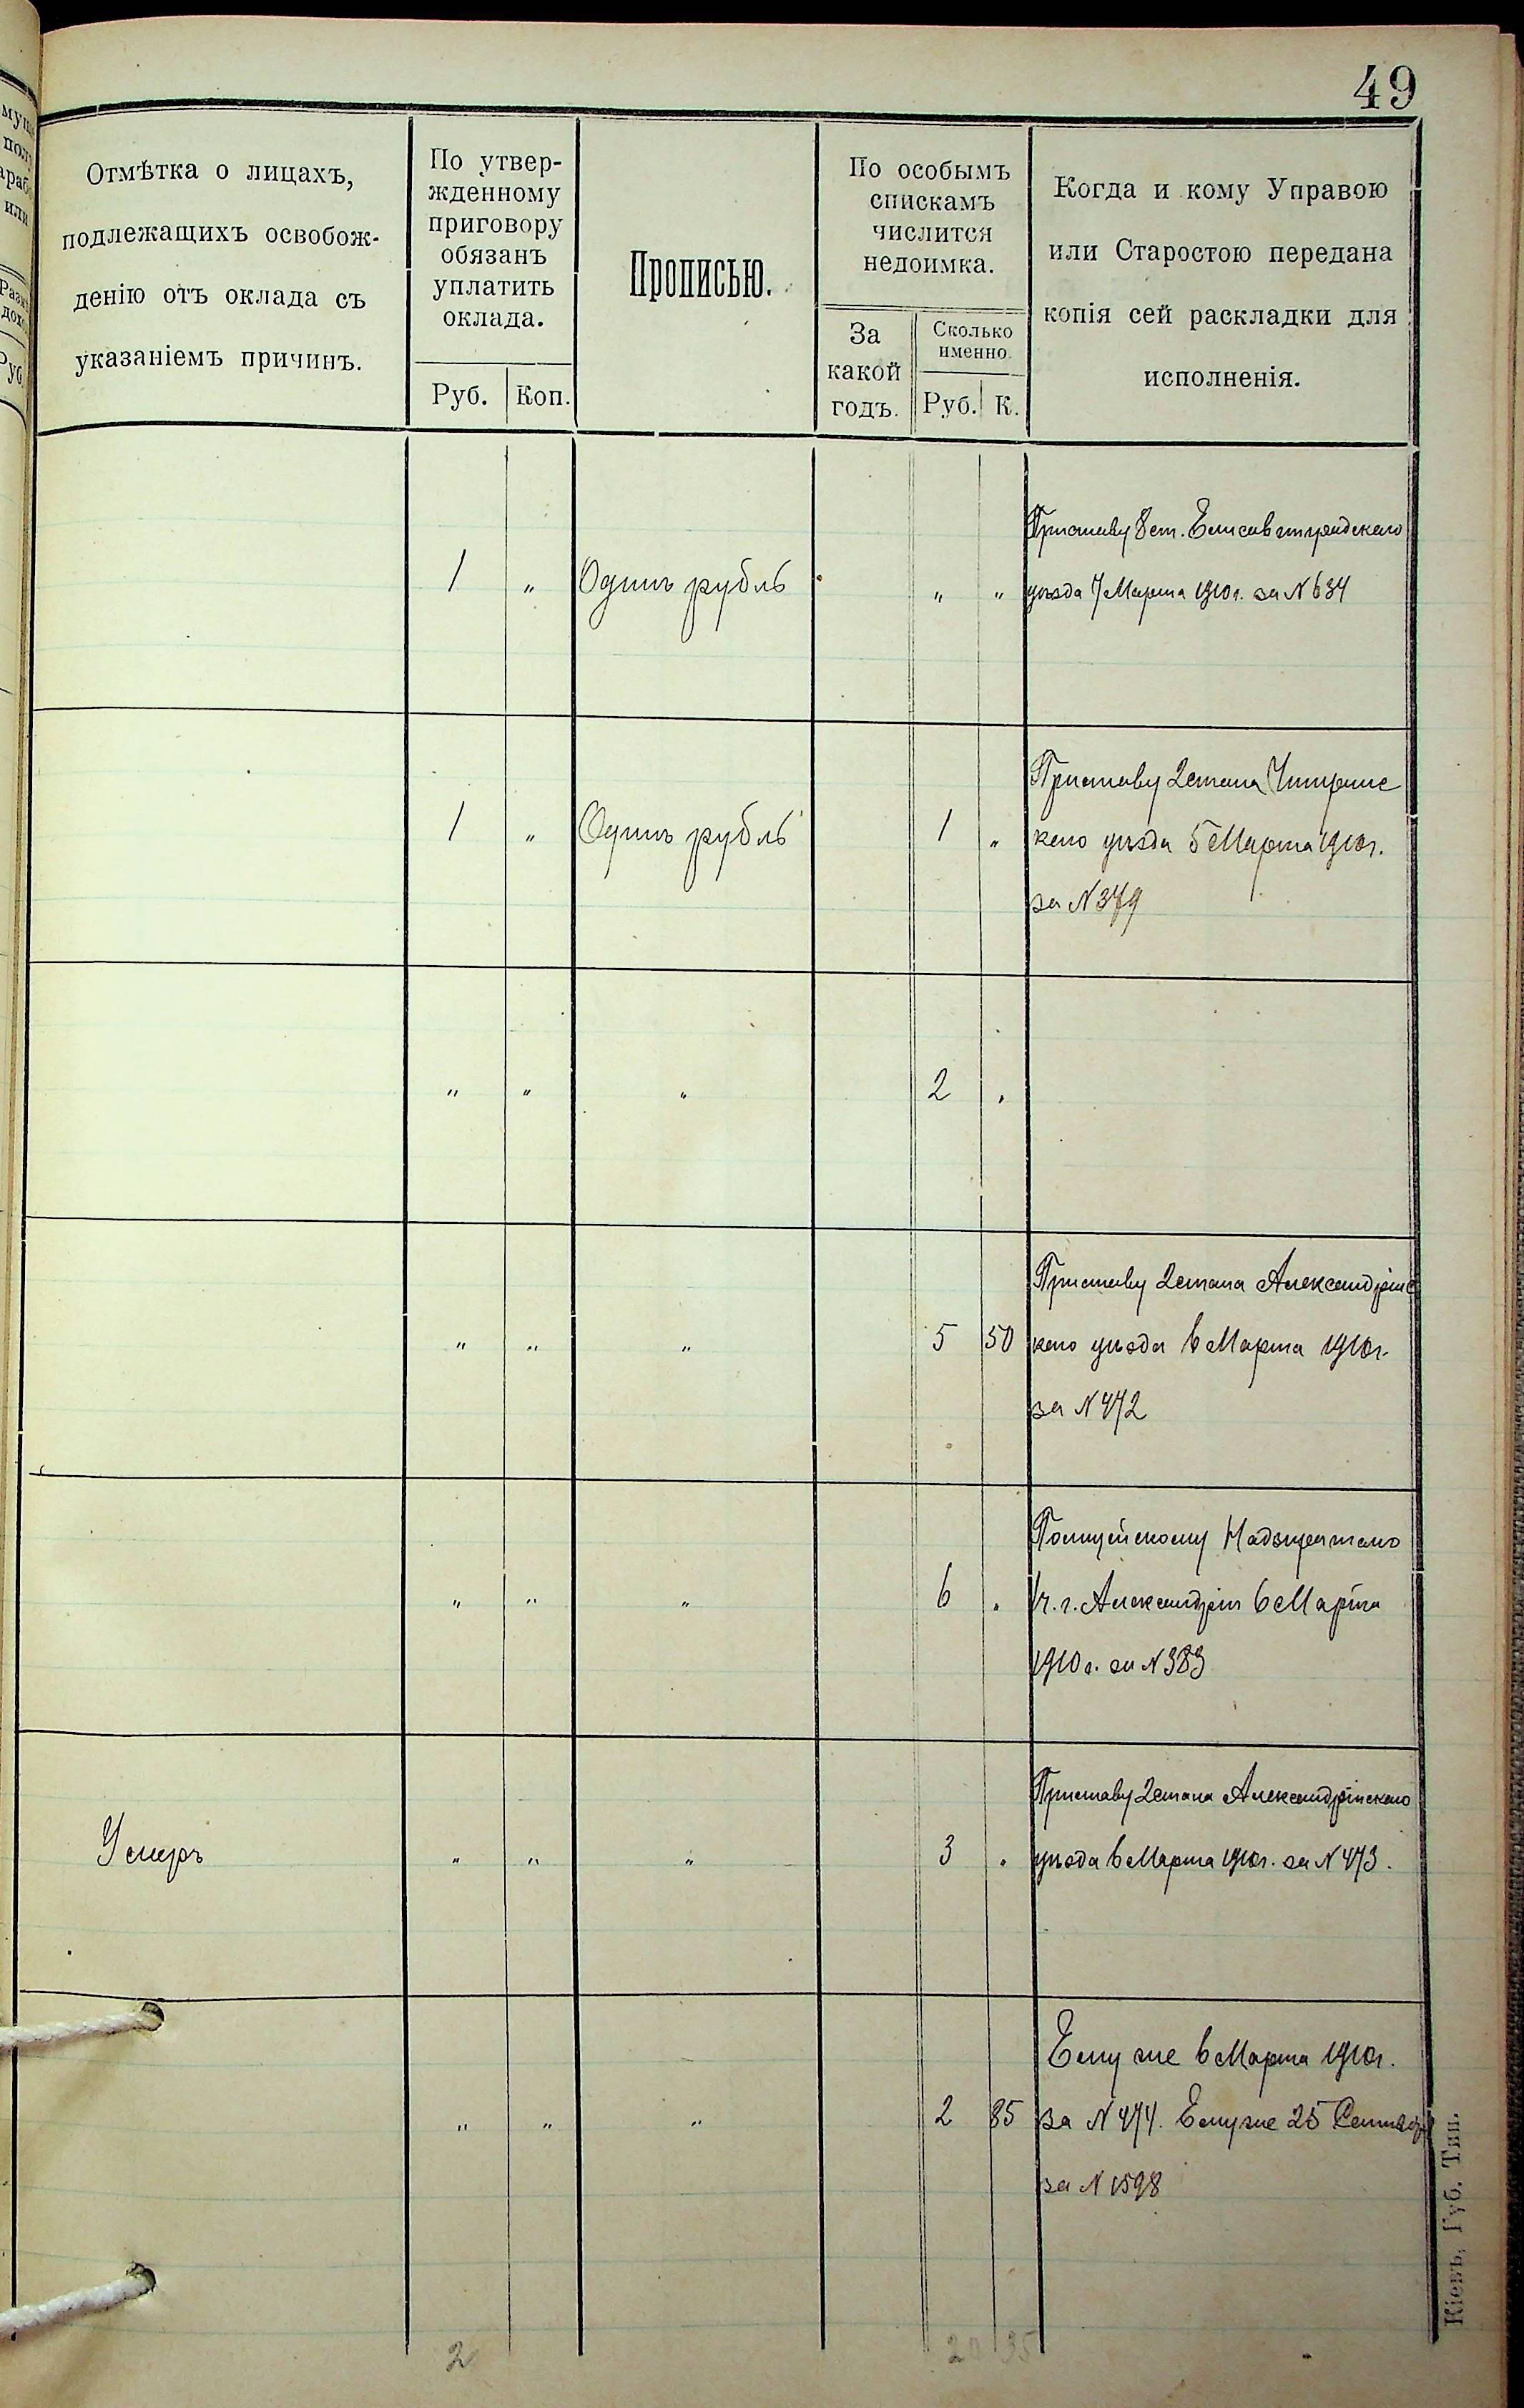 49
Отмѣтка о лицахъ,
подлежащихъ освобож-
денію отъ оклада съ
указаніемъ причинъ.
По утвер-
жденному
приговору
обязанъ
уплатить
оклада.
Руб. Коп.
Прописью.
По особымъ
спискамъ
числится
недоимка.
За
какой
годъ.
Сколько
именно.
Руб. К.
Когда и кому Управою
или Старостою передана
копія сей раскладки для
исполненія.
Приставу 8 ст. Елисаветградскаго
1 " Одинъ рубль " " уѣзда 7 Марта 1910 г. за N 634
Приставу 2 стана Чигринс
1 " Одинъ рубль 1 " каго уѣзда 5 Марта 1910 г.
за N 379
" " " 2 "
Приставу 2 стана Александрійс
" " " 5 50 каго уѣзда 6 Марта 1910 г.
за N 472
Полицейскому Надзирателю
" " " 6 " г. Александріи 6 Марта
1910 г. за N 383
Приставу 2 стана Александрійскаго
Умеръ " " " 3 " уѣзда 6 Марта 1910 г. за N 473.
Ему же 6 Марта 1910 г.
" " " 2 85 за N 474. Ему же 25 Сентября
за N 1598
2 20 35
Кіевъ, Губ. Тип.